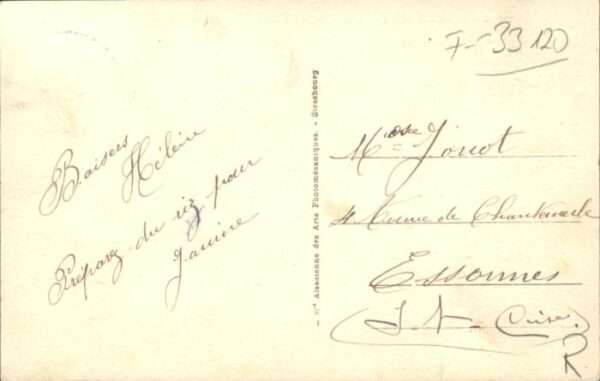 Baisers
Hélène
Préparez du riz pour
Janine
— Cie Alsacienne des Arts Photomécaniques. - Strasbourg
33120
Jouot
4 Avenue de Chantemerle
Essonnes
(S. &. Oise.)
R